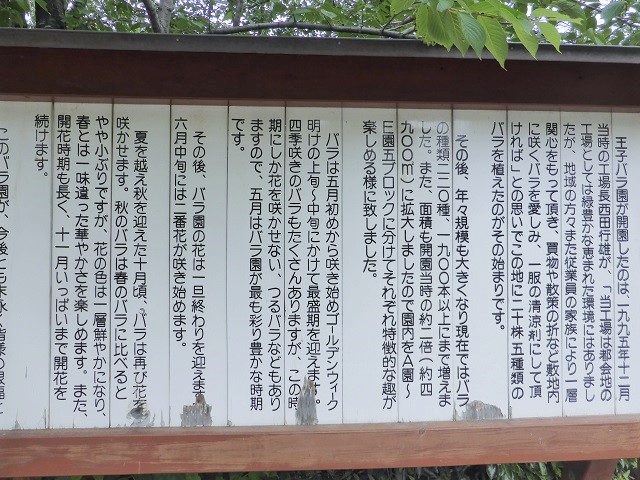 王子バラ園が開園したのは、一九九五年十二月
当時の工場長西田行雄が、「当工場は都会地の
工場としては緑豊かな恵まれた環境にはありまし
たが、地域の方々また従業員の家族により一層
関心をもって頂き、買物や散策の折など敷地内
に咲くバラを愛しみ、一服の清涼剤にして頂
ければ」との思いでこの地に二十株五種類の
バラを植えたのがその始まりです。
その後、年々規模も大きくなり現在ではバラ
の種類二二〇種、一九〇〇本以上にまで増えま
した。また、面積も開園当時の約二倍(約四
九〇〇㎡)に拡大しましたので園内をA園〜
E園五ブロックに分けてそれぞれ特徴的な趣が
楽しめる様に致しました。
バラは五月初めから咲き始めゴールデンウィーク
明けの上旬〜中旬にかけて最盛期を迎えます。
四季咲きのバラもたくさんありますが、この時
期にしか花を咲かせない、つるバラなどもあり
ますので、五月はバラ園が最も彩り豊かな時期
です。
その後、バラ園の花は一旦終わりを迎えま
六月中旬には二番花が咲き始めます。
夏を越え秋を迎えた十月頃、バラは再び花を
咲かせます。秋のバラは春のバラに比べると
やや小ぶりですが、花の色は一層鮮やかになり、
春とは一味違った華やかさを楽しめます。また、
開花時期も長く、十一月いっぱいまで開花を
続けます。
このバラ園が、今後とも末永く皆様の